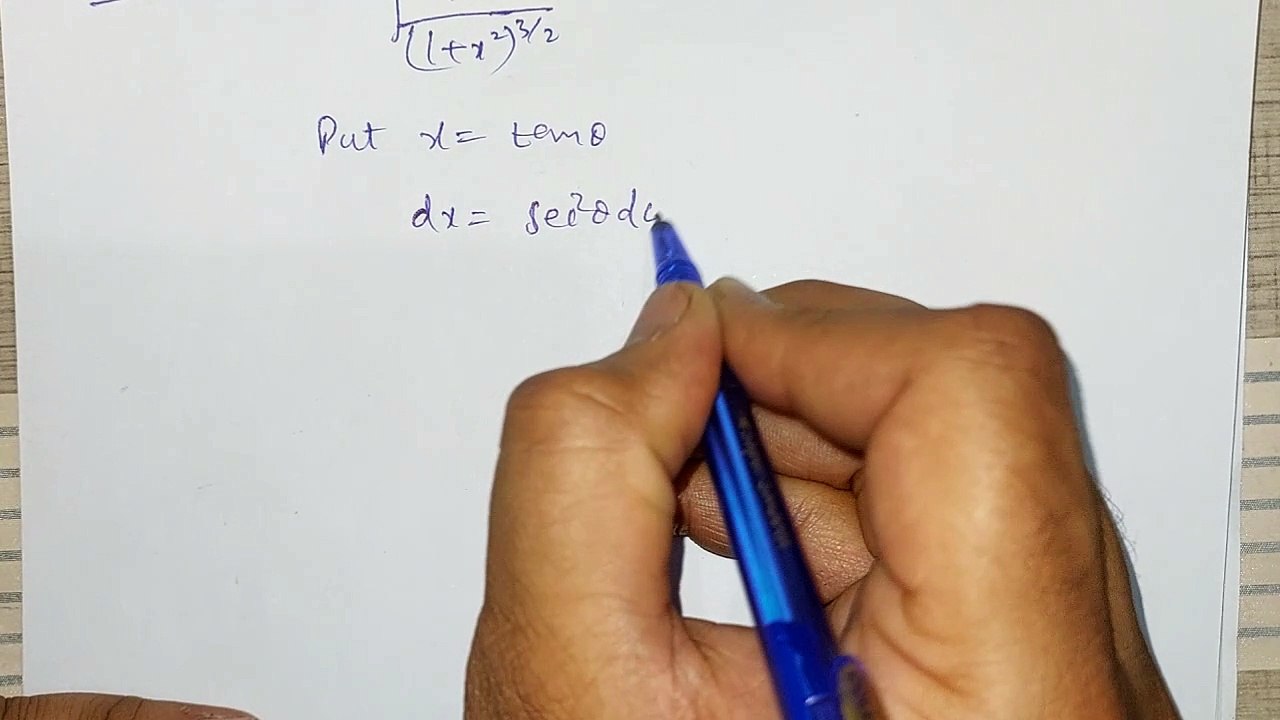 (1+x²)^3/2
Put x = tanθ
dx = sec²θ d